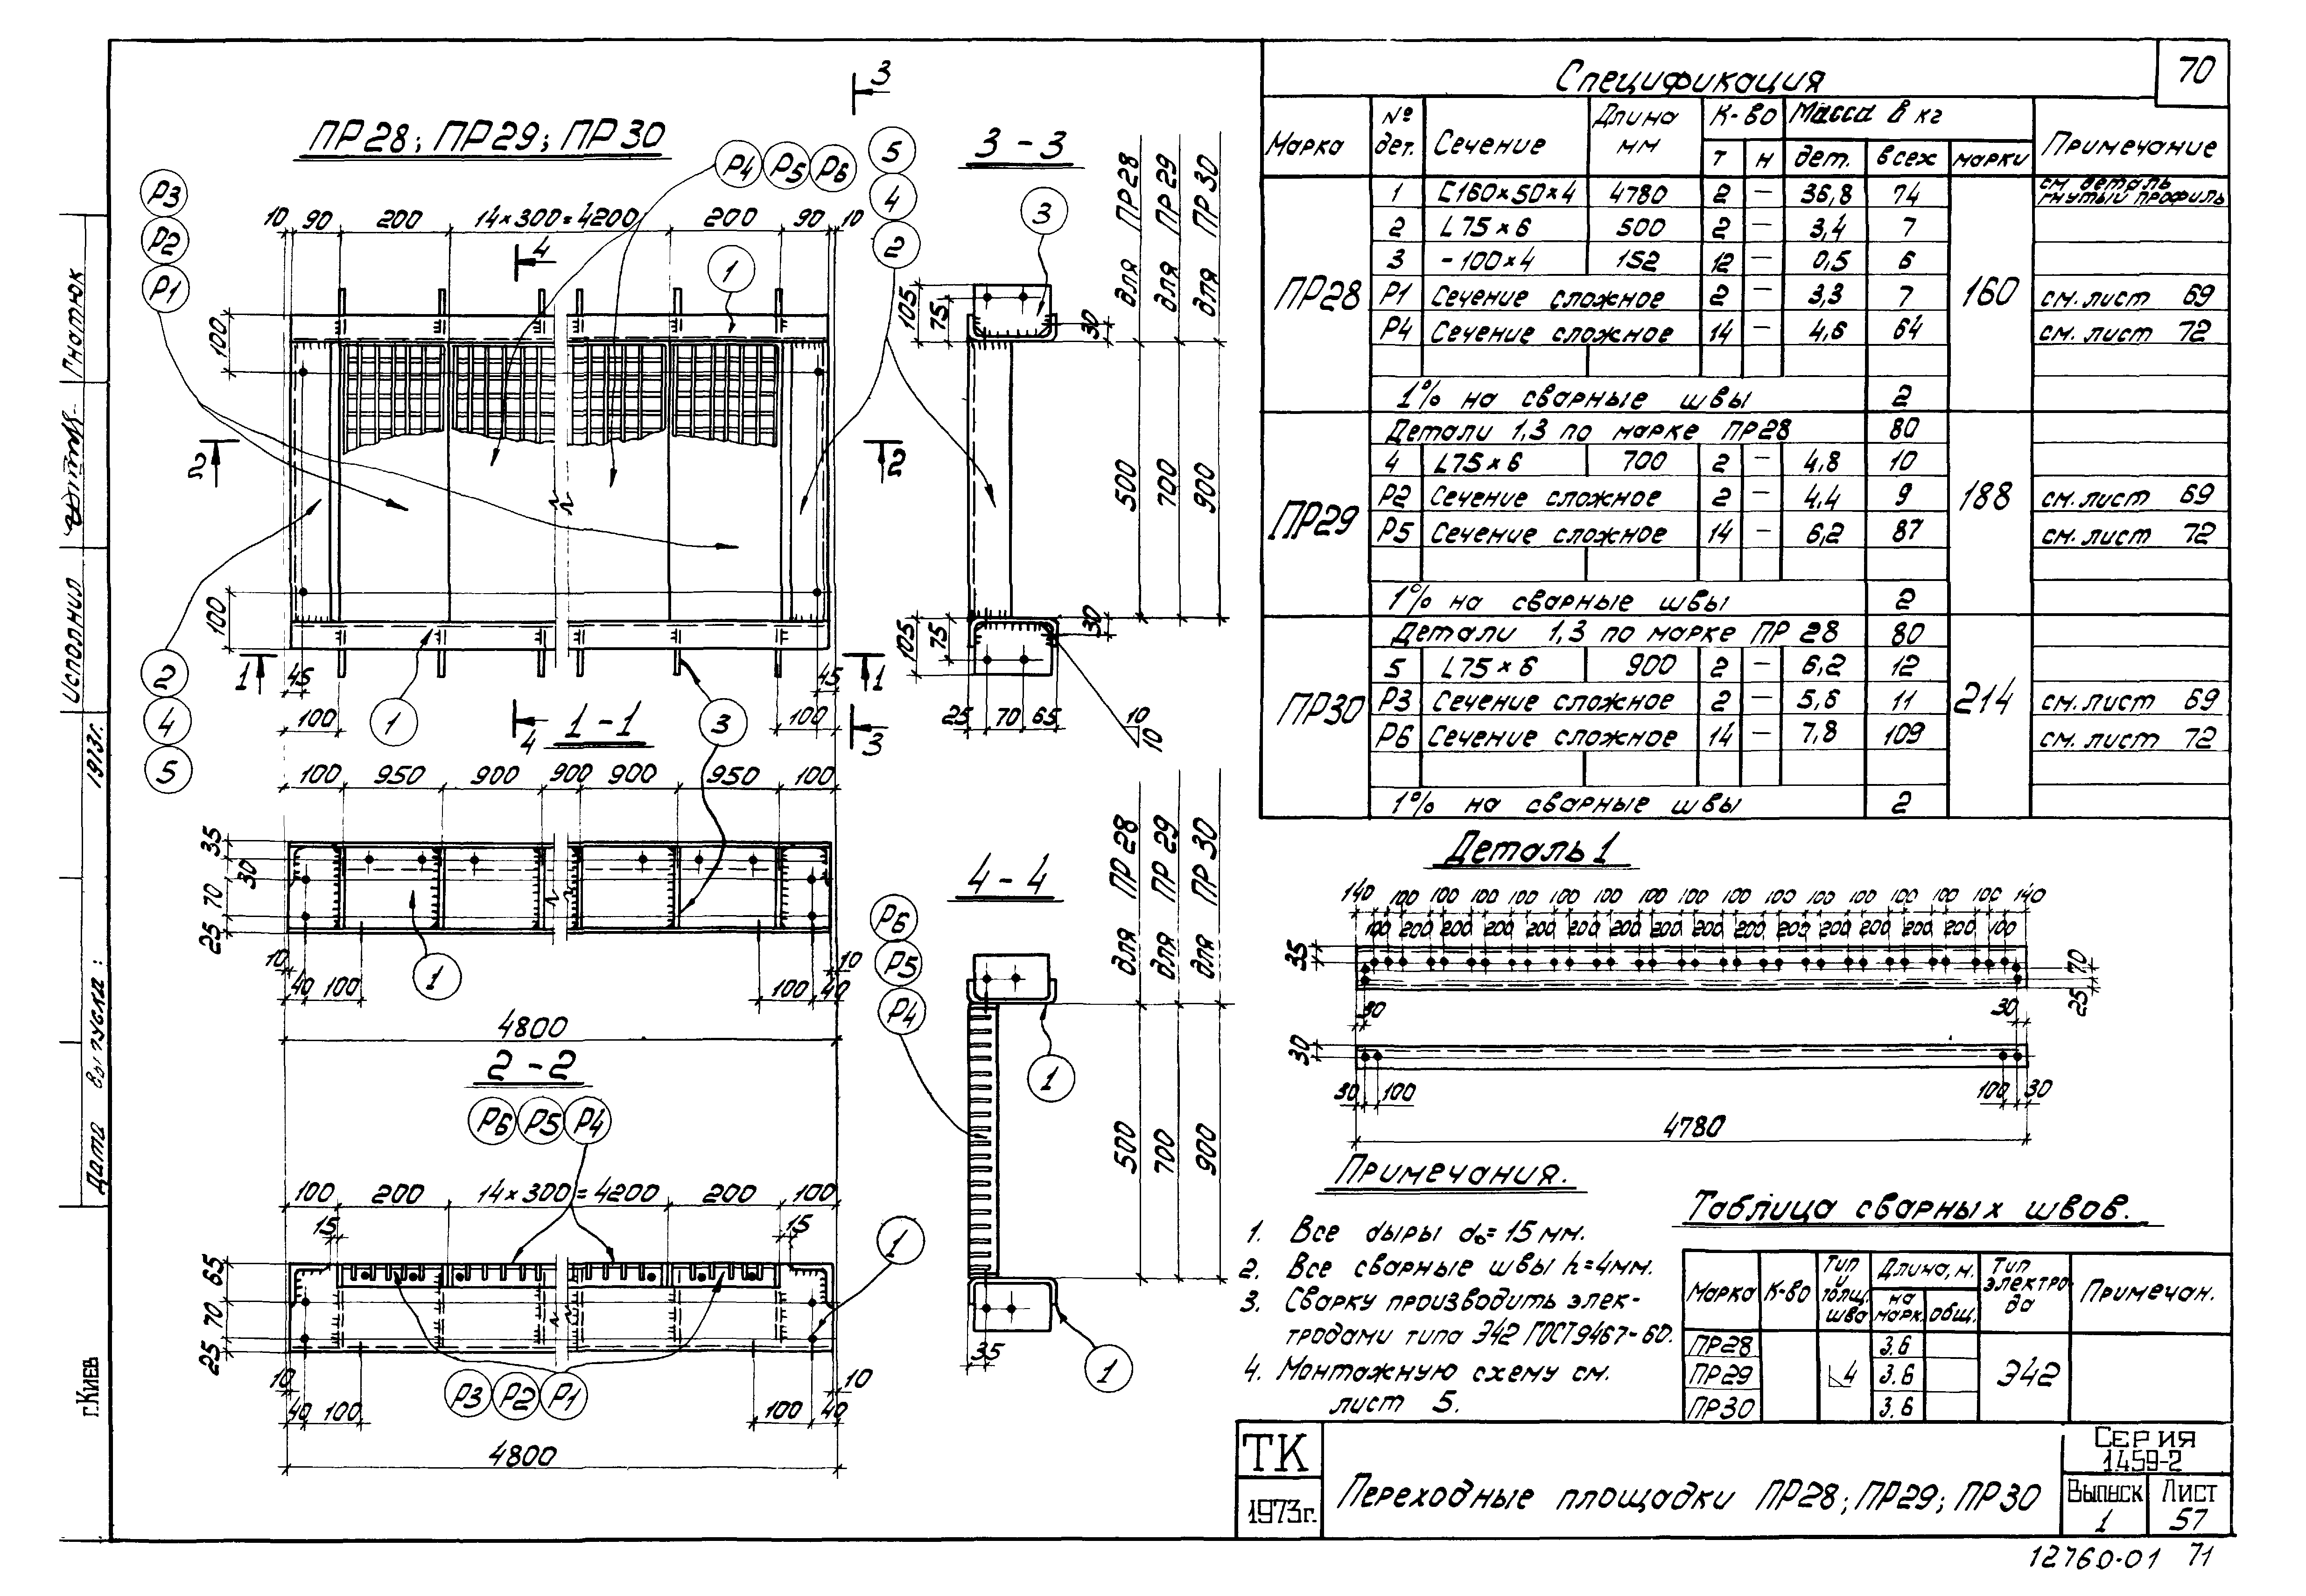 70
ПР28; ПР29; ПР30
3
Р4 Р5 Р6
5
4
2
Р3
Р2
Р1
10 90 200 14×300=4200 200 90 10
4
1
100
2
2
100
45
45
1
1
2
4
5
100
1
3
100
4
3
1-1
100 950 900 900 900 950 100
35
30
70
25
10
40 100
1
100 40
10
4800
2-2
Р6 Р5 Р4
100 200 14×300=4200 200 100
15
15
1
65
70
25
10
40 100
Р3 Р2 Р1
100 40
10
4800
3-3
3
для ПР28
для ПР29
для ПР30
105
75
30
500
700
900
105
75
30
25 70 65
10
10
4-4
для ПР28
для ПР29
для ПР30
Р6
Р5
Р4
1
500
700
900
35
1
Спецификация
Марка № дет. Сечение Длина мм К-во Масса в кг Примечание
т н дет. всех марки
ПР28 160
1 С160×50×4 4780 2 — 36,8 74 см деталь гнутый профиль
2 L75×6 500 2 — 3,4 7
3 -100×4 152 12 — 0,5 6
Р1 Сечение сложное 2 — 3,3 7 см. лист 69
Р4 Сечение сложное 14 — 4,6 64 см. лист 72
1% на сварные швы 2
ПР29 188
Детали 1,3 по марке ПР28 80
4 L75×6 700 2 — 4,8 10
Р2 Сечение сложное 2 — 4,4 9 см. лист 69
Р5 Сечение сложное 14 — 6,2 87 см. лист 72
1% на сварные швы 2
ПР30 214
Детали 1,3 по марке ПР28 80
5 L75×6 900 2 — 6,2 12
Р3 Сечение сложное 2 — 5,6 11 см. лист 69
Р6 Сечение сложное 14 — 7,8 109 см. лист 72
1% на сварные швы 2
Деталь 1
140 100 100 100 100 100 100 100 100 100 100 100 100 100 100 100 140
100 200 200 200 200 200 200 200 200 200 200 200 200 200 200 100
35
70
25
30
30
30
30 100
100 30
4780
Примечания.
1. Все дыры d₀=15 мм.
2. Все сварные швы h=4мм.
3. Сварку производить элек-
тродами типа Э42 ГОСТ9467-60.
4. Монтажную схему см.
лист 5.
Таблица сварных швов.
Марка К-во Тип и толщ. шва Длина, м. Тип электрода Примечан.
на марк. общ.
ПР28 3.6
ПР29 ◺4 3.6 Э42
ПР30 3.6
ТК
1973г.
Переходные площадки ПР28; ПР29; ПР30
Серия
1.459-2
Выпуск
1
Лист
57
12760-01 71
Исполнил Гнатюк
Дата выпуска: 1973г.
г.Киев